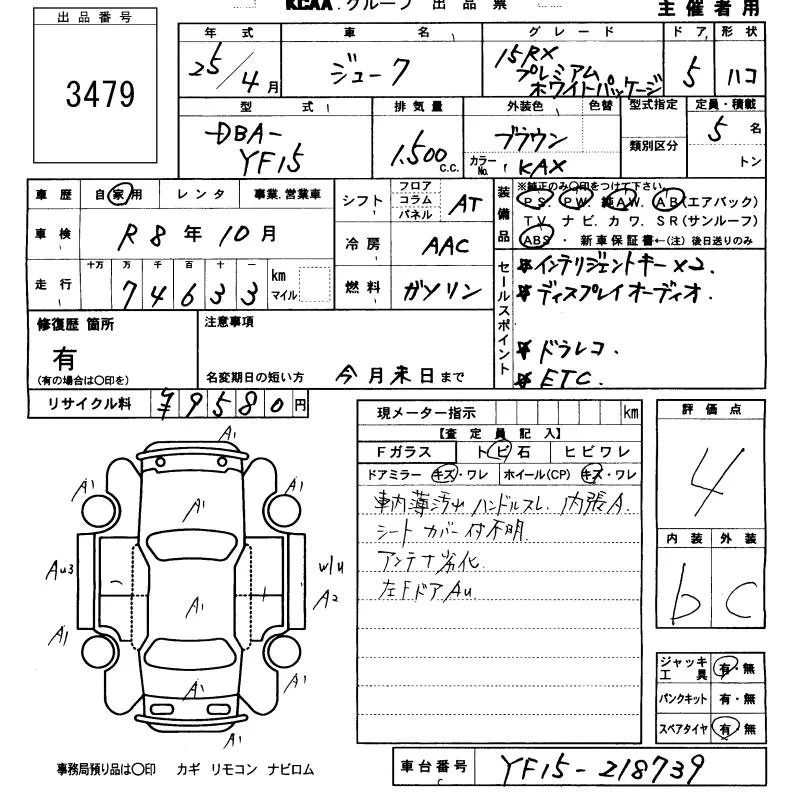 KCAA.グループ 出品票 主催者用
出品番号
3479
年式 車名 グレード ドア 形状
25/4月 ジューク 15RX プレミアム ホワイトパッケージ 5 ハコ
型式 排気量 外装色 色替 型式指定 定員・積載
DBA-YF15 1.500 c.c. ブラウン 類別区分 5名
カラーNo. KAX トン
車歴 自家用 レンタ 事業.営業車
車検 R8年10月
走行 十万 万 千 百 十 一
74633 km マイル
シフト フロア コラム パネル AT
冷房 AAC
燃料 ガソリン
装備品 ※純正のみ〇印をつけて下さい
P.S. P.W. 純A.W. A.B(エアバック)
T.V. ナビ. カワ. S.R(サンルーフ)
ABS ・ 新車保証書←(注) 後日送りのみ
セールスポイント
インテリジェントキー×2.
ディスプレイオーディオ.
ドラレコ.
ETC.
修復歴 箇所
有
(有の場合は〇印を)
注意事項
名変期日の短い方 今月末日まで
リサイクル料 ¥9580円
現メーター指示 km
【査定員記入】
Fガラス トビ石 ヒビワレ
ドアミラー キズ・ワレ ホイール(CP) キズ・ワレ
車内薄汚れ ハンドルスレ. 内張A.
シートカバー付不明
アンテナ劣化
左FドアAu
評価点
4
内装 外装
b C
ジャッキ 工具 有・無
パンクキット 有・無
スペアタイヤ 有・無
A1
A1 A1 A1
Au3 A1 W/U A2
A1 A1 A1
A1
事務局預り品は〇印 カギ リモコン ナビロム
車台番号 YF15-218739